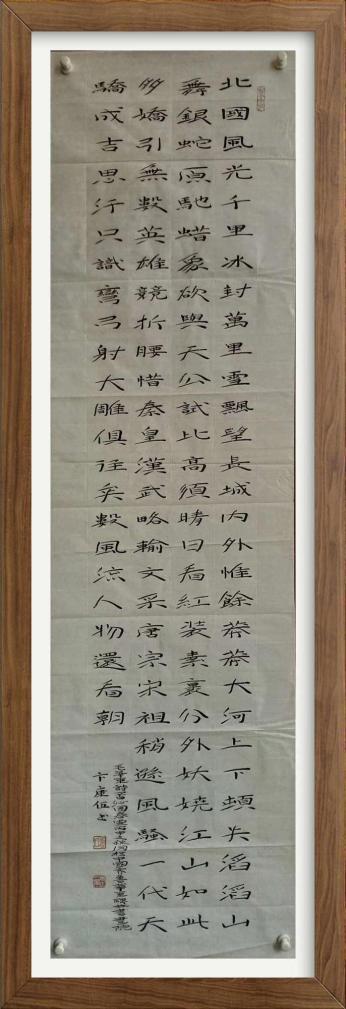 北國風光千里冰封萬里雪飄望長城內外惟餘莽莽大河上下頓失滔滔山
舞銀蛇原馳蜡象欲與天公試比高須晴日看紅裝素裹分外妖嬈江山如此
多嬌引無數英雄競折腰惜秦皇漢武略輸文采唐宗宋祖稍遜風騷一代天
驕成吉思汗只識彎弓射大雕俱往矣數風流人物還看朝
毛澤東詩沁園春雪